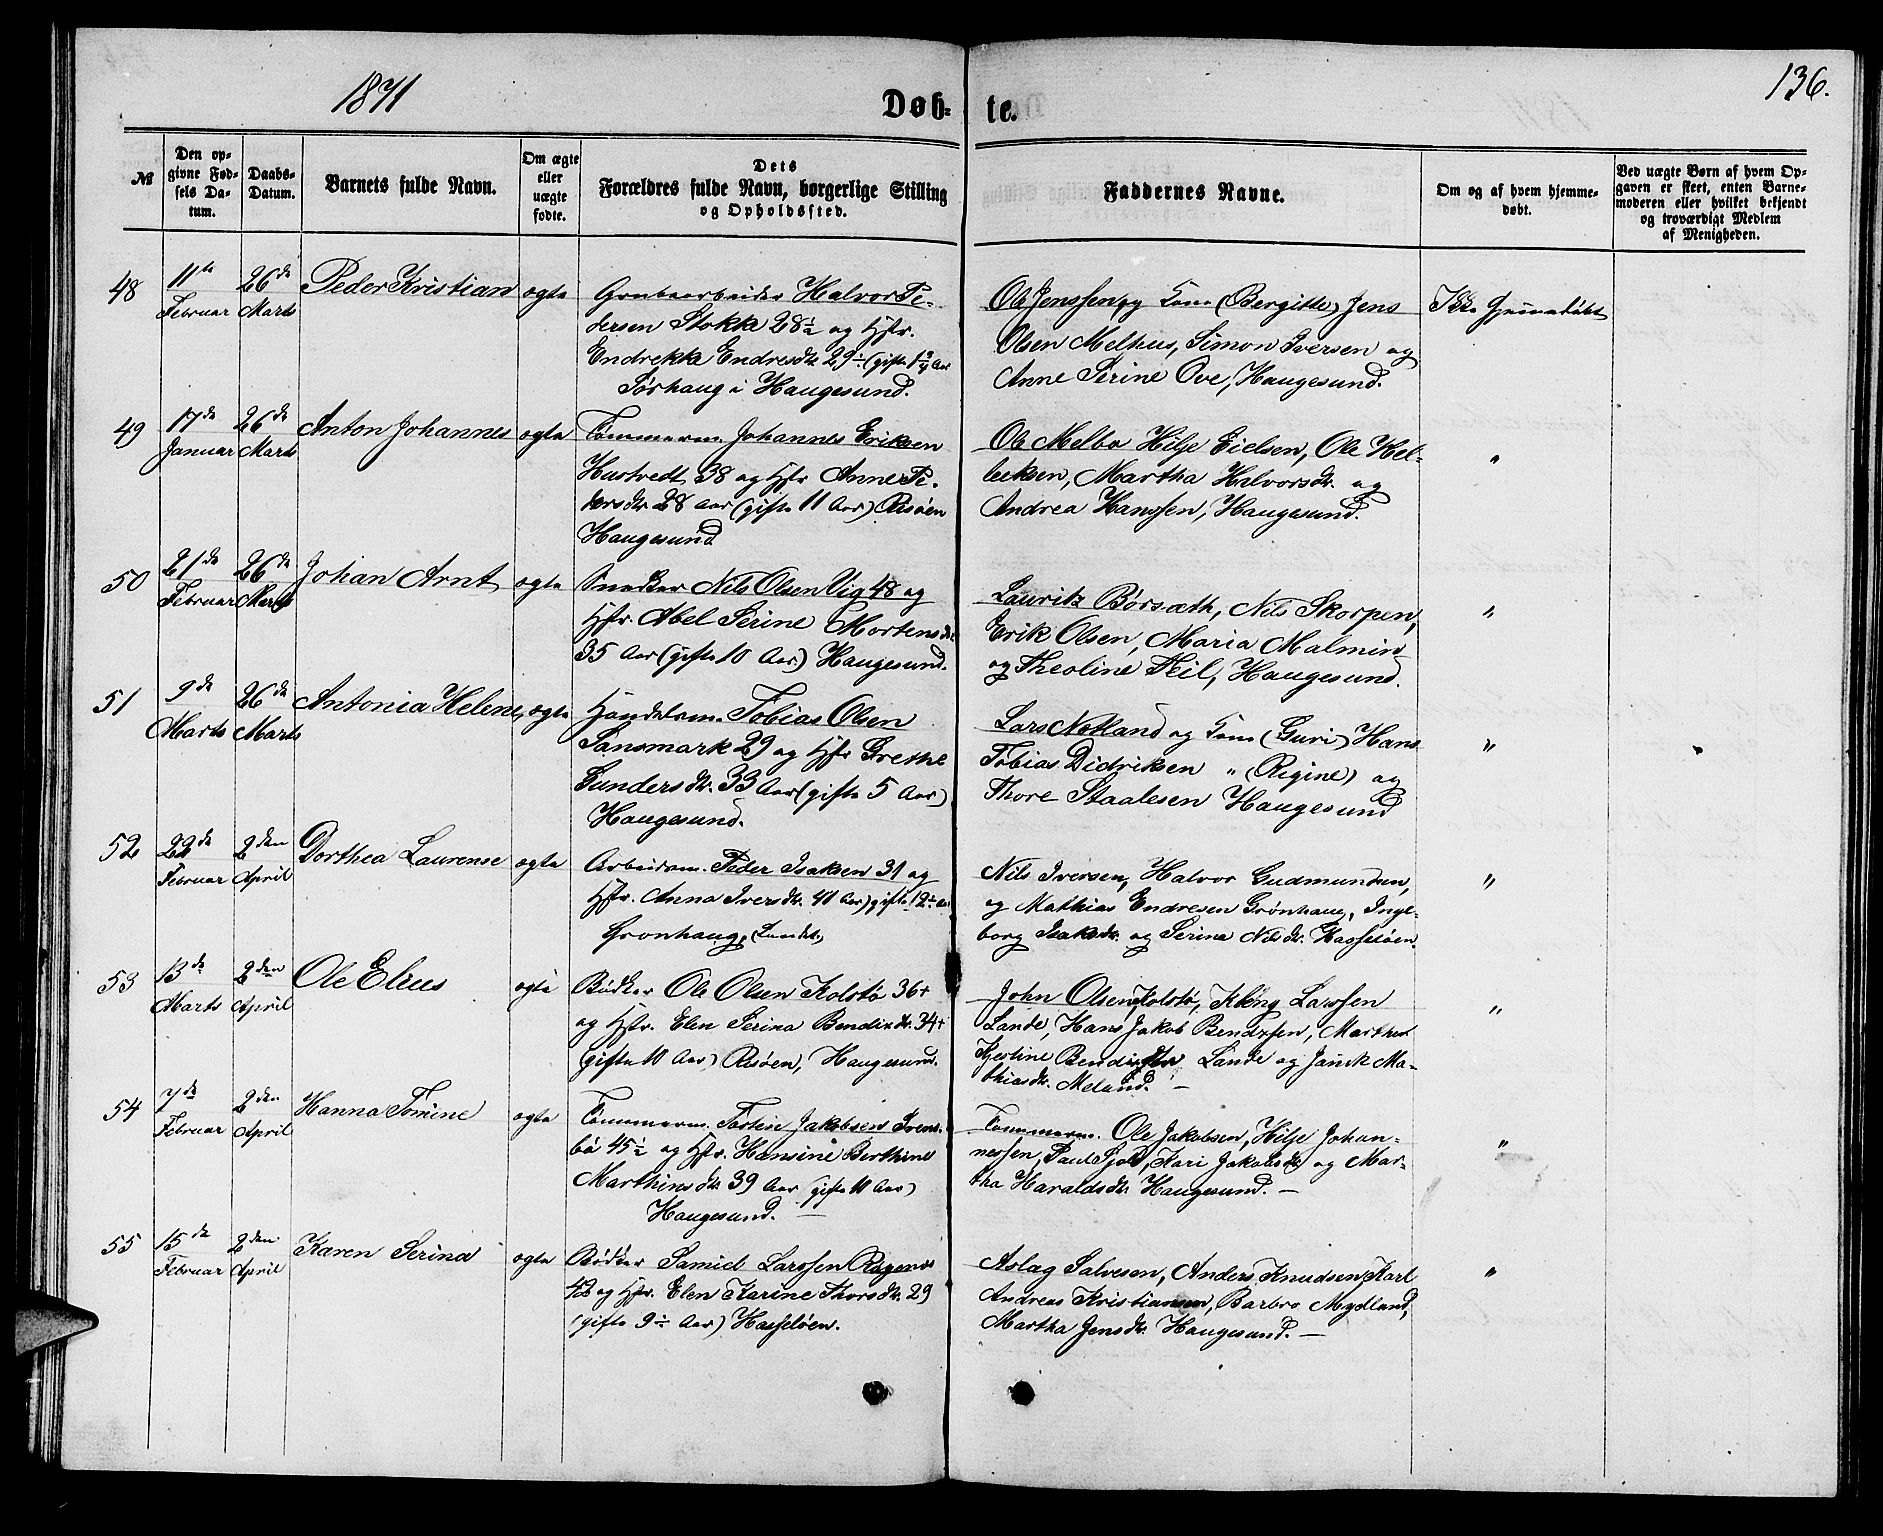 1871
136.
Døb-te.
№
Den op-
givne Fød-
sels Da-
tum.
Daabs-
Datum.
Barnets fulde Navn.
Om ægte
eller
uægte
fødte.
Dets
Forældres fulde Navn, borgerlige Stilling
og Opholdssted.
Faddernes Navne.
Om og af hvem hjemme-
døbt.
Ved uægte Børn af hvem Op-
gaven er skeet, enten Barne-
moderen eller hvilket bekjendt
og troværdigt Medlem
af Menigheden.
48
11te
Februar
26de
Marts
Peder Kristian
ægte
Grubearbeider Halvor Pe-
dersen Stokke 28½ og Hstr.
Endrekke Endresdtr 29½ (gifte 1¾ Aar
Sørhaug i Haugesund.
Ole Jenssen, og Kone (Bergitte) Jens
Olsen Melhus, Simon Iversen og
Anne Serine Ove, Haugesund.
Ikke Hjemmedøbt
49
17de
Januar
26de
Marts
Anton Johannes
ægte
Tømmerm. Johannes Eriksen
Hustvedt 38 og Hstr Anne Pe-
dersdtr 28 Aar (gifte 11 Aar) Risøen
Haugesund
Ole Melbo Hilje Eielsen, Ole Hel-
leksen, Martha Halvorsdtr. og
Andrea Hanssen, Haugesund.
"
50
21de
Februar
26de
Marts
Johan Arnt
ægte
Snedker Nils Olsen Vig 48 og
Hstr. Abel Serine Mortensdtr
35 Aar (gifte 10 Aar) Haugesund.
Lauritz Børsæth, Nils Skorpen,
Erik Olsen, Maria Malmin
og Theoline Feil, Haugesund.
"
51
9de
Marts
26de
Marts
Antonia Helene
ægte
Handelsm. Tobias Olsen
Sansmark 29 og Hstr Grethe
Gundersdtr. 33 Aar (gifte 5 Aar)
Haugesund.
Lars Netland og Kone (Guri) Hans
Tobias Didriksen " (Regine) og
Thore Staalesen Haugesund
"
52
22de
Februar
2den
April
Dorthea Laurense
ægte
Arbeidsm. Peder Isaksen 31 og
Hstr. Anna Iversdtr. 41 Aar) gifte 12½ Aar
Grønhaug, (Landet.)
Nils Iversen, Halvor Gudmundsen,
og Mathias Endresen Grønhaug, Inge-
borg Isaksdtr. og Serine Nilsdtr. Hasseløen.
"
53
13de
Marts
2den
April
Ole Elius
ægte
Bødker Ole Olsen Kolstø 36+
og Hstr. Elen Serina Bendixdtr. 34+
(gifte 10 Aar) Risøen, Haugesund.
John Olsen Kolstø, Kleng Larssen
Lande, Hans Jakob Bendixsen, Marthe
Kjestine Bendixdtr Lande og Janik Ma-
thiasdtr. Meland. —
"
54
7de
Februar
2den
April
Hanna Tomine
ægte
Tømmerm. Tostein Jakobsen Svens-
bø 45½ og Hstr. Hansine Berthine
Marthinsdtr. 39 Aar gifte 11 Aar)
Haugesund. —
Tømmerm. Ole Jakobsen, Hilje Johan-
nessen, Paul, Kari Jakobsdtr og Mar-
tha Haraldsdtr. Haugesund. —
"
55
15de
Februar
2den
April
Karen Serina
ægte
Bødker Samiel Larssen
42 og Hstr. Elen Karine Thorsdtr. 29
(gifte 9½ Aar) Hasseløen.
Aslag Salvesen, Anders Knudsen, Karl
Andreas Kristiansen, Barbro Mydland,
Martha Jensdtr. Haugesund. —
"